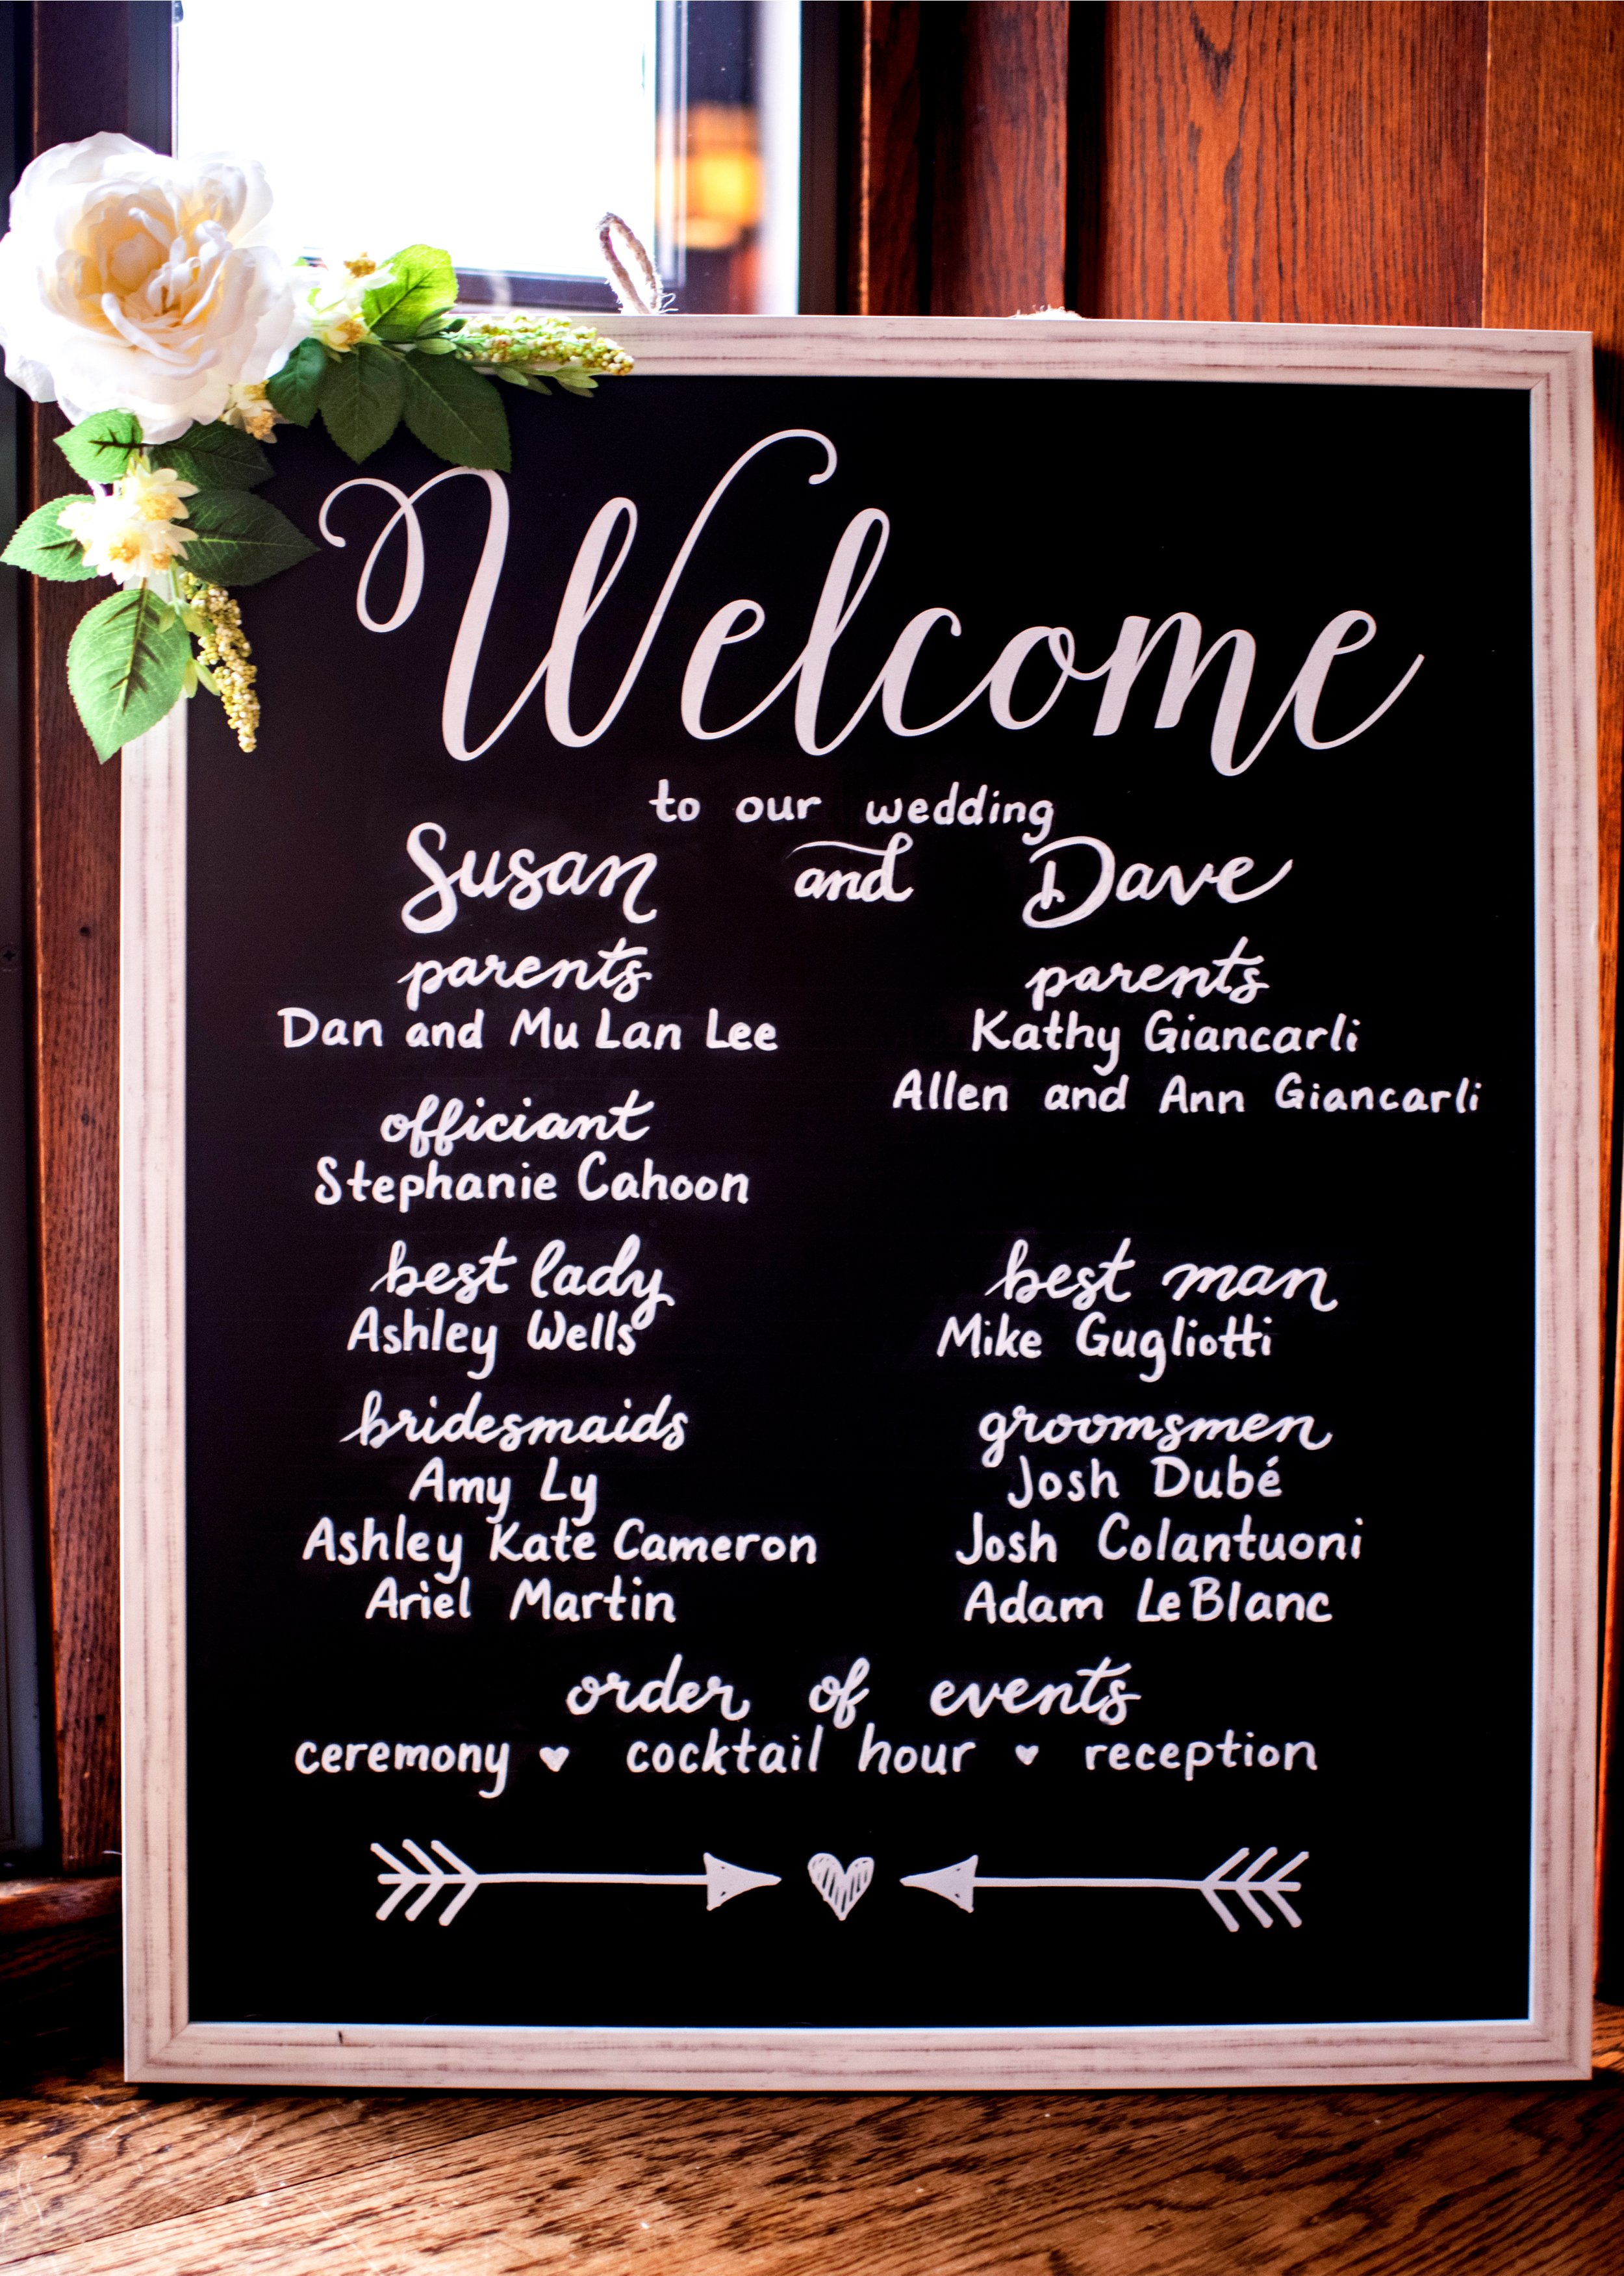 Welcome
to our wedding
Susan and Dave
parents
Dan and Mu Lan Lee
officiant
Stephanie Cahoon
parents
Kathy Giancarli
Allen and Ann Giancarli
best lady
Ashley Wells
bridesmaids
Amy Ly
Ashley Kate Cameron
Ariel Martin
best man
Mike Gugliotti
groomsmen
Josh Dubé
Josh Colantuoni
Adam LeBlanc
order of events
ceremony ♥ cocktail hour ♥ reception